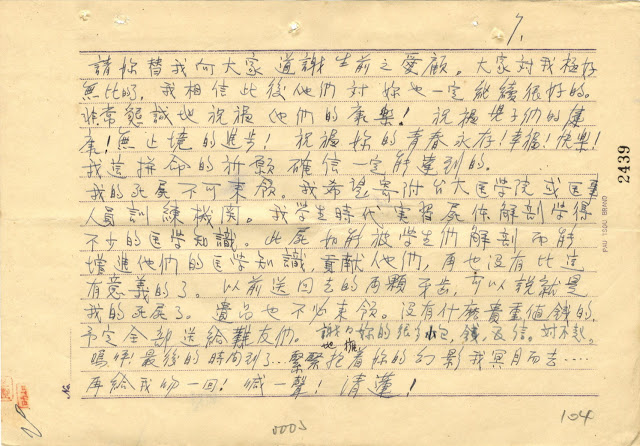 7.
請妳替我向大家道謝生前之愛顧。大家対我極好
無比的，我相信此後他們対妳也一定能續很好的。
非常懇誠地祝福他們的康樂！祝福児子們的健
康！無止境的進步！祝福妳的青春永存！幸福！快樂！
我這拼命的祈願確信一定能達到的。
我的死屍不可来領。我希望寄附台大医学院或医事
人員訓練機関。我学生時代実習屍体解剖学得
不少的医学知識。此屍如能被学生們解剖而能
增進他們的医学知識，貢献他們，再也沒有比這
有意義的了。以前送回去的両顆牙齒，可以說就是
我的死屍了。遺品也不必来領。沒有什麼貴重值錢的，
予定全部送給難友們。謝々妳的小包，錢，及信。対不起。
嗚呼！最後的時间到了...緊緊地抱着妳的幻影我冥目而去.....
再給我吻一回！喊一聲！清蓮！
No.
2439
104
0005